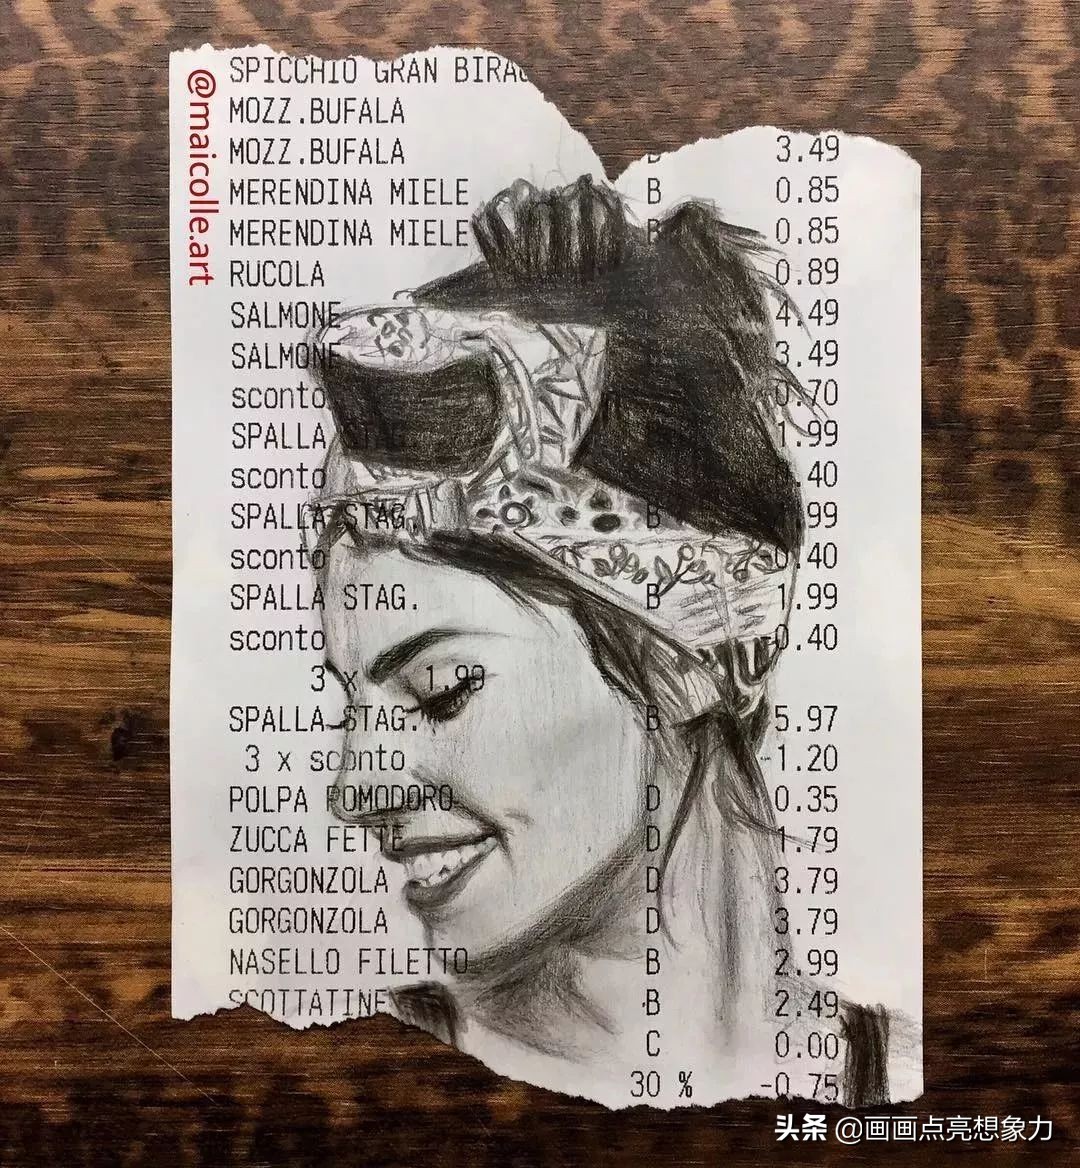 @maicolle.art
SPICCHIO GRAN BIRAG
MOZZ.BUFALA
MOZZ.BUFALA 3.49
MERENDINA MIELE B 0.85
MERENDINA MIELE B 0.85
RUCOLA 0.89
SALMONE 4.49
SALMONE 3.49
sconto 0.70
SPALLA STAG. 1.99
sconto .40
SPALLA STAG. B .99
sconto 0.40
SPALLA STAG. B 1.99
sconto -0.40
3 x 1.99
SPALLA STAG. B 5.97
3 x sconto -1.20
POLPA POMODORO D 0.35
ZUCCA FETTE D 1.79
GORGONZOLA D 3.79
GORGONZOLA D 3.79
NASELLO FILETTO B 2.99
SCOTTATINE B 2.49
C 0.00
30 % -0.75
头条 @画画点亮想象力